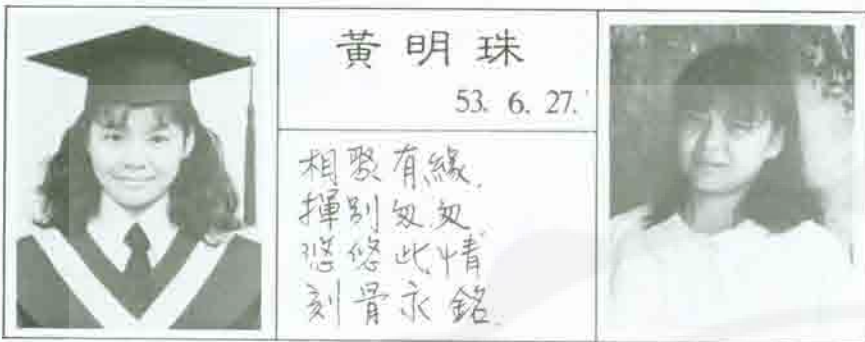 黃明珠
53. 6. 27.
相聚有緣.
揮別匆匆.
悠悠此情
刻骨永銘.